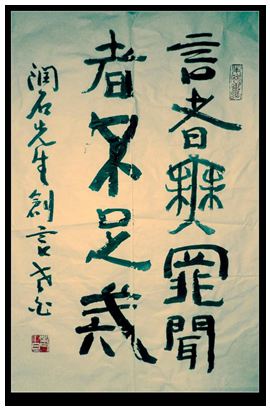 言者無罪聞
者不足戒
润石先生創言